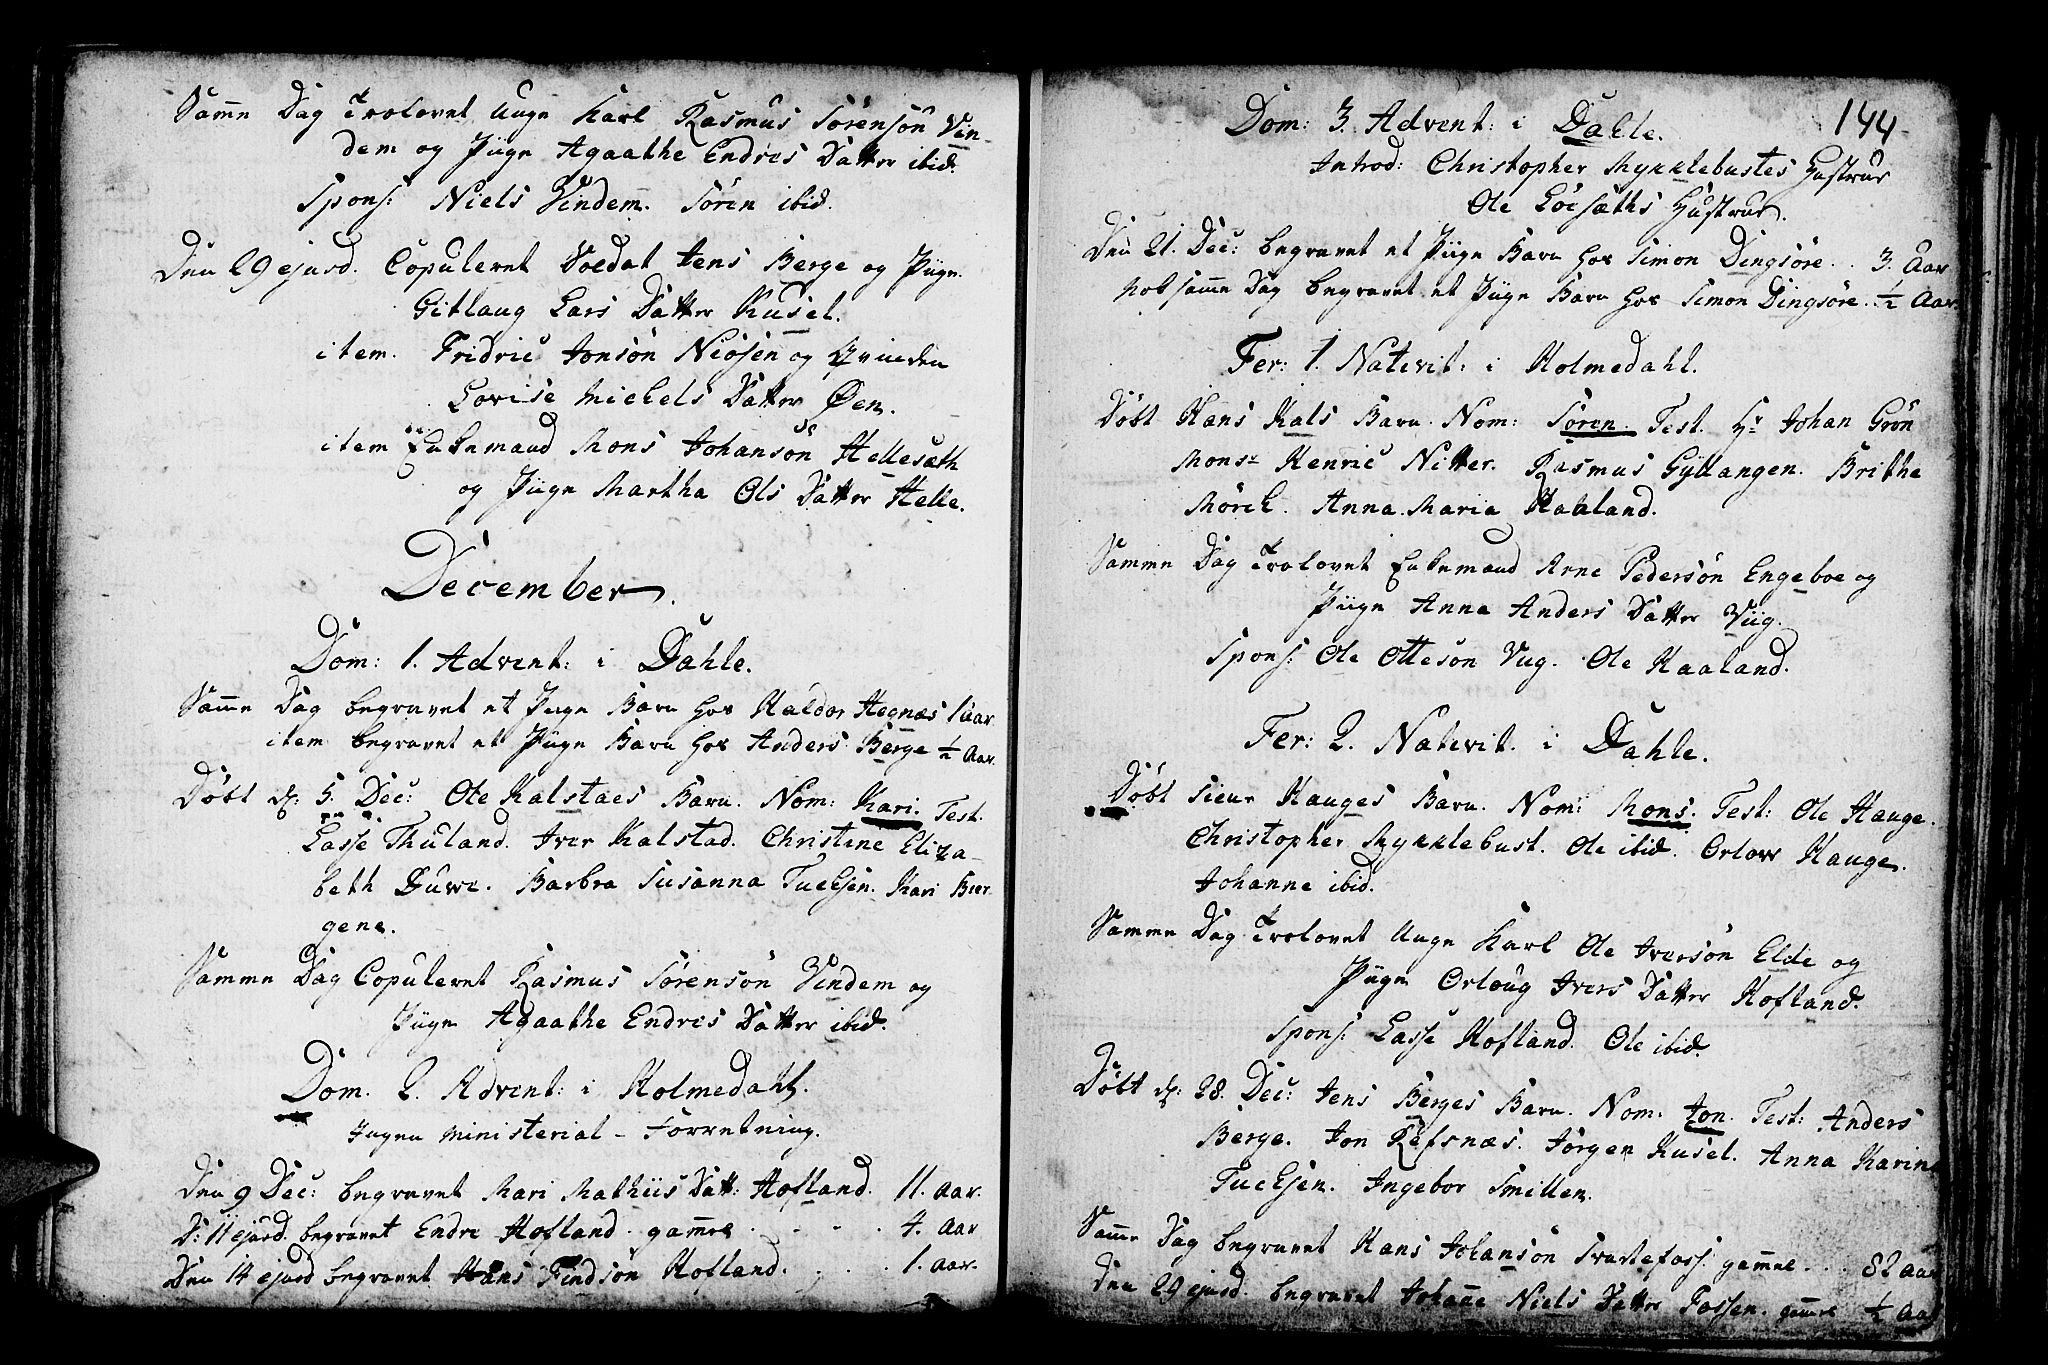 Samme Dag Trolovet Unge Karl Rasmus Sörensön Vin-
dem og Piige Agaathe Endres Datter ibid.
Spons: Niels Vindem. Sören ibid.
Den 29 ejusd. Copuleret Soldat Jens Berge og Piige
Gitlaug Lars Datter Kusel.
item. Fridric Jonsön Niösen og Qvinden
Lovise Michels Datter Øen.
item Enkemand Mons Johansön Hellesæth
og Piige Martha Ols Datter Helle.
December.
Dom: 1. Advent: i Dahle.
Samme Dag begravet et Piige Barn hos Haldor Hegnæs 1 aar
item begravet et Piige Barn hos Anders Berge ½ Aar.
Döbt d: 5. Dec: Ole Kalstaes Barn. Nom: Kari. Test.
Lasse Thuland. Iver Kalstad. Christine Eliza-
beth Duwe. Barbra Susanna Tuchsen. Kari Bier-
gene.
Samme Dag Copuleret Rasmus Sörensön Vindem og
Piige Agaathe Endres Datter ibid.
Dom. 2. Advent: i Holmedahl.
Ingen Ministerial-Forretning.
Den 9 Dec: begravet Mari Mathiis Datt: Hofland. 11. aar.
D: 11 ejusd. begravet Endre Hofland. gamel . . . . 4. Aar
Den 14 ejusd begravet Hans Findsön Hofland. . . . 1. aar.
144
Dom: 3. Advent: i Dahle.
Introd: Christopher Mykklebustes Hustrue
Ole Löesæths Hustrue.
Den 21. Dec: begravet et Piige Barn hos Simon Dingsöre. . 3. Aar
nok samme Dag begravet et Piige Barn hos Simon Dingsöre. ½ Aar.
Fer: 1. Nativit: i Holmedahl.
Döbt Hans Kals Barn. Nom: Sören. Test. Hr Johan Grön
Monsr Henric Nitter. Rasmus Gyttangen. Brithe
Mörch. Anna Maria Haaland.
Samme Dag Trolovet Enkemand Arne Pedersön Engeboe og
Piige Anna Anders Datter Viig.
Spons: Ole Ottesön Vug. Ole Haaland.
Fer: 2. Nativit. i Dahle.
Döbt Sieur Hauges Barn. Nom: Mons. Test: Ole Hauge.
Christopher Mykklebust. Ole ibid. Orlow Hauge.
Johanne ibid.
Samme Dag Trolovet Unge Karl Ole Iversön Elde og
Piige Orloug Ivers Datter Hofland.
Spons: Lasse Hofland. Ole ibid.
Döbt d: 28. Dec: Jens Berges Barn. Nom: Jon. Test: Anders
Berge. Jon Refsnæs. Jörgen Kusel. Anna Karine
Tuchsen. Ingebor Smillen.
Samme Dag begravet Hans Johansön Svartefoss. gammel . . . 82 aar
Den 29 ejusd. begravet Johanne Niels Datter Fossen. gammel ½ Aar